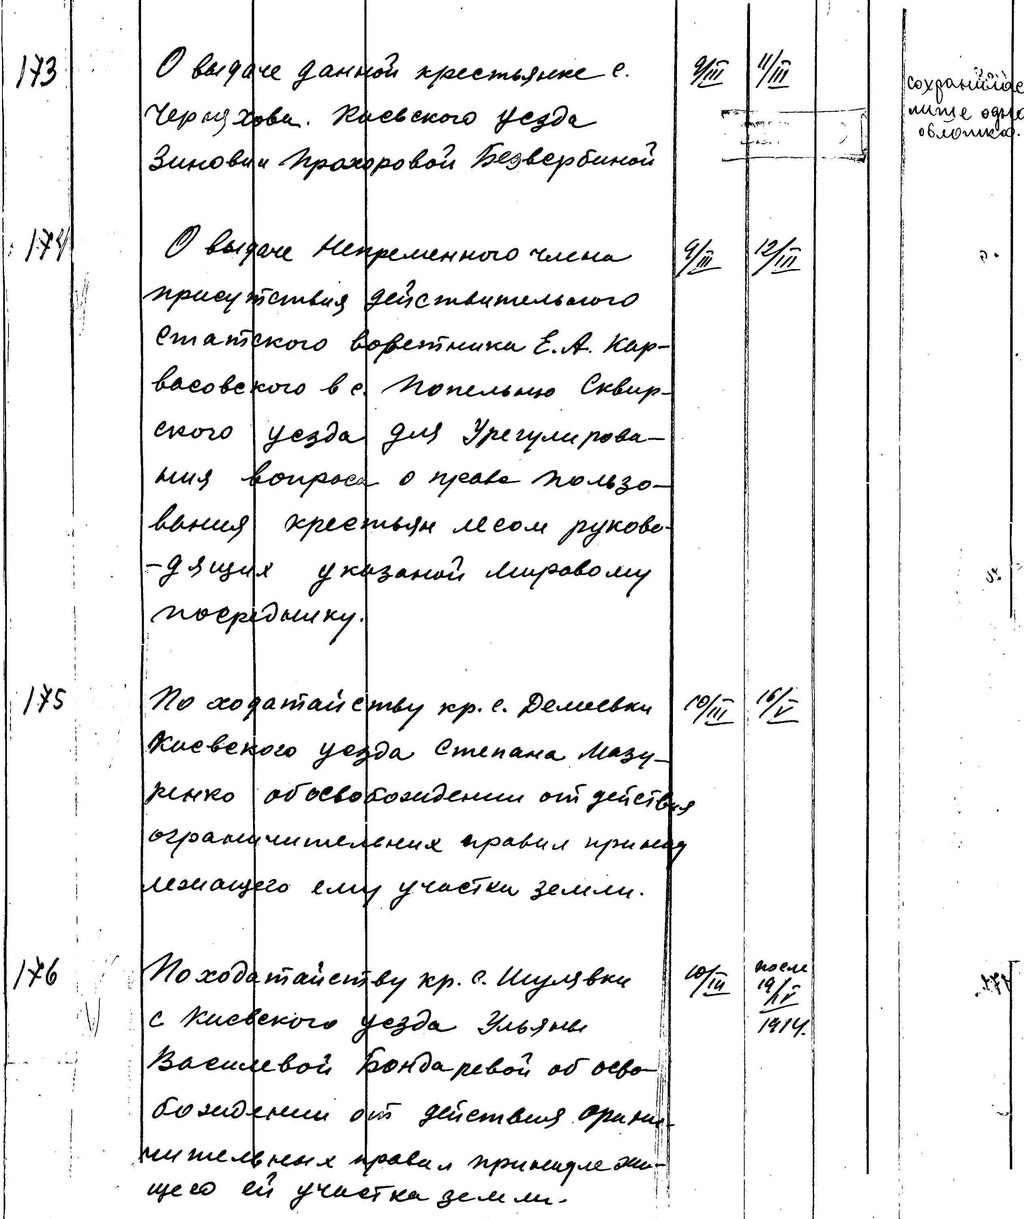 173
О выдаче данной крестьянке с.
Черняхова. Киевского уезда
Зиновии Прохоровой Безвербиной
9/III 11/III
сохранилас
лише одна
обложка.
174
О выдаче Непременного члена
присутствия действительного
статского советника Е. А. Кар-
васовского в с. Попельню Сквир-
ского уезда для Урегулирова-
ния вопроса о праве пользо-
вания крестьян лесом руково-
-дящих указаной Мировому
посреднику.
9/III 12/III
175
По ходатайству кр. с. Демиевки
Киевского уезда Степана Мазу-
ренко об освобождении от действия
ограничительных правил принад
лежащего ему участка земли.
10/III 16/V
176
По ходатайству кр. с. Шулявки
с Киевского уезда Ульяны
Василевой Бондаревой об осво-
бождении от действия ограни-
чительных правил принадлежа-
щего ей участка земли.
10/III после
19/IV
1914.